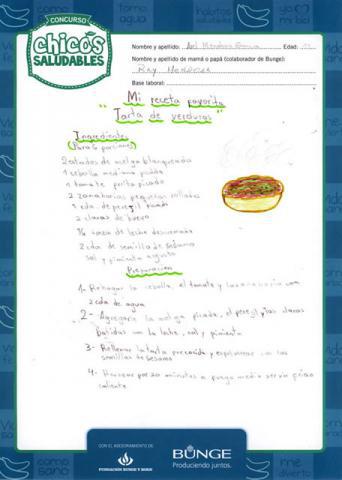 CONCURSO
chicos
SALUDABLES
Nombre y apellido: Mendoza Edad: 11
Nombre y apellido de mamá o papá (colaborador de Bunge):
Ray Mendoza
Base laboral:
Mi receta favorita
"Tarta de verduras"
Ingredientes
(Para 6 porciones)
2 atados de acelga blanqueada
1 cebolla mediana picada
1 tomate perita picado
2 zanahorias pequeñas ralladas
1 cda. de perejil picado
2 claras de huevo
3/4 taza de leche descremada
2 cda de semilla de sésamo
sal y pimienta a gusto
Preparación
1- Rehogar la cebolla, el tomate y la zanahoria con
2 cda de agua
2- Agregarle la acelga picada, el perejil y las claras
batidas con la leche, sal y pimienta
3- Rellenar la tarta precocida y espolvorear con las
semillas de sésamo
4- Hornear por 20 minutos a fuego medio servir fría o
caliente
CON EL ASESORAMIENTO DE
FUNDACIÓN BUNGE Y BORN
BUNGE
Produciendo juntos.